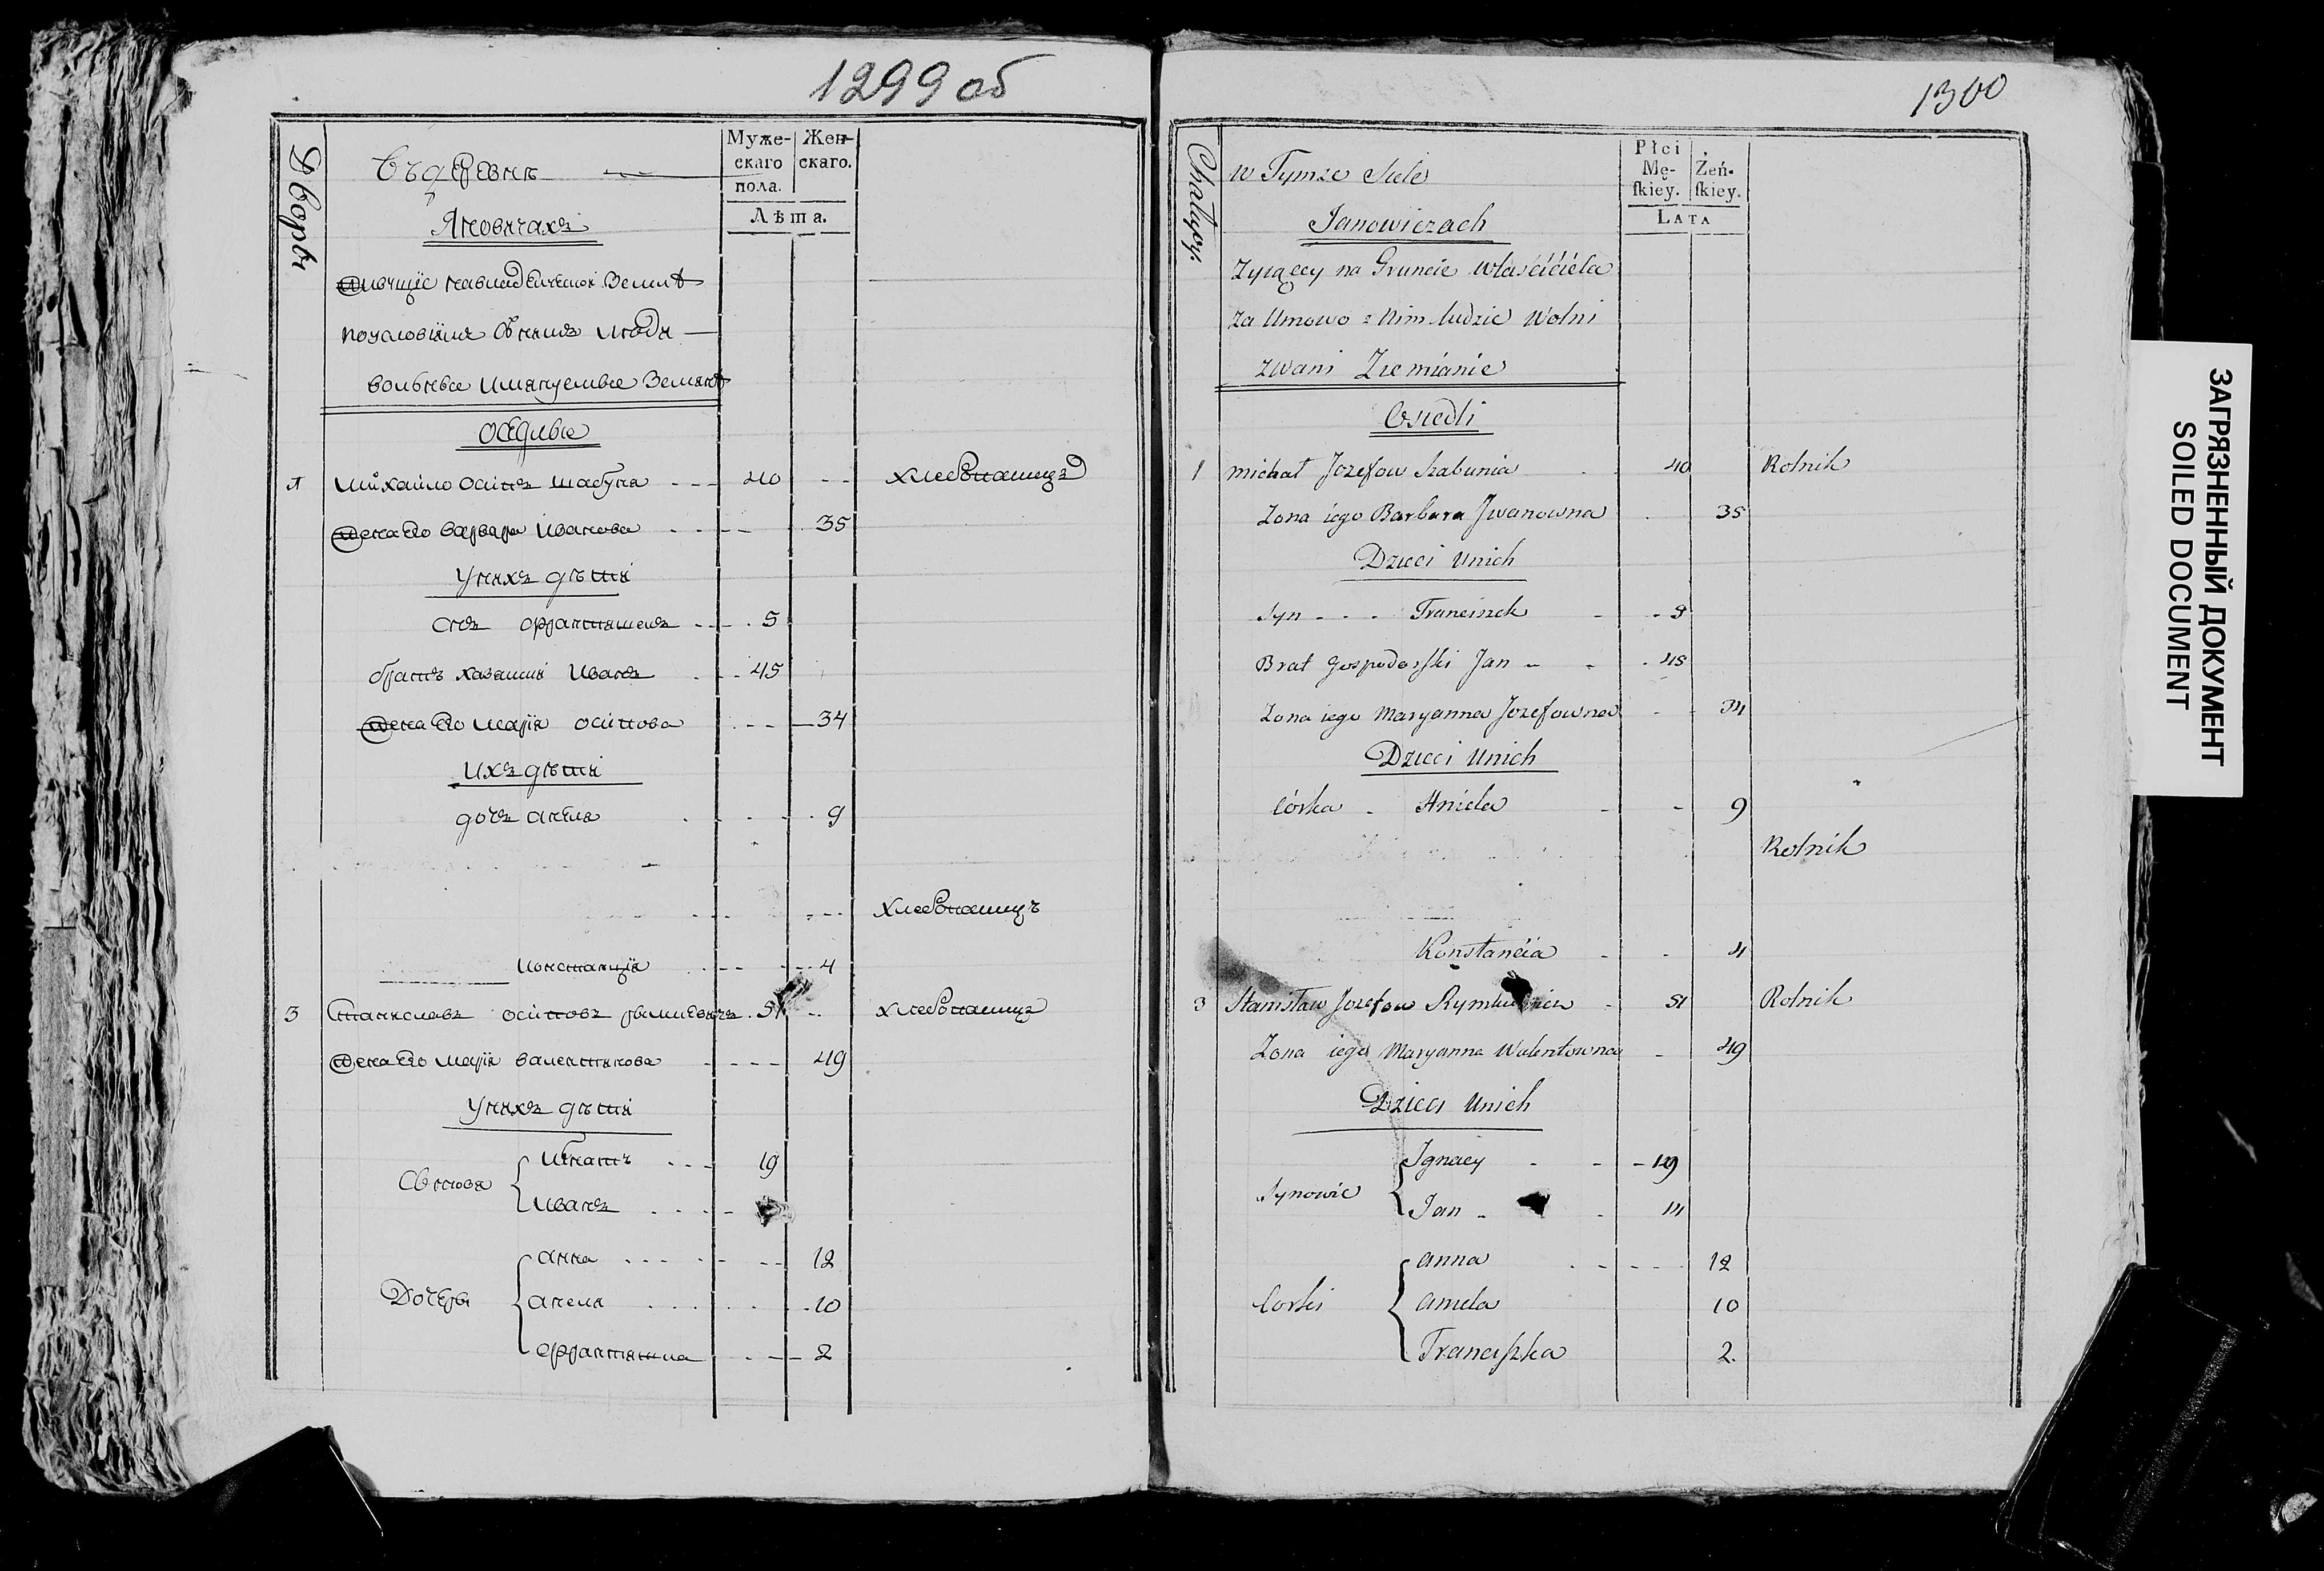 1299 об
Дворы
Въ деревни
Муже-
скаго
пола.
Жен-
скаго.
Лѣта.
Яновичах
живущіе на владельческой Земле
по условіям с ним люди
вольные имянуемые Земяне
оседлые
1 Михайло Осипов Шабуня 40 хлебопашиц
жена его варвара Иванова 35
у них дети
сын франтишек 5
брат хазяина Иван 45
жена его Марія осипова 34
их дети
дочь анеля 9
хлебопашиц
Констанція 4
3 Станислав осипов рымшевич 51 хлебопашиц
жена его Марія валентинова 49
у них дети
Сыновя
Игнат 19
Иван
Дочери
анна 12
анеля 10
франтишка 2
1300
Chałupy.
w Tymże Siele
Płci
Mę-
skiey.
Żeń-
skiey.
Lata
Janowiczach
Zyiący na Gruncie właściciela
Za Umowo z Nim ludzie Wolni
zwani Ziemianie
Osiedli
1 Michał Jozefow Szabunia 40 Rolnik
Zona iego Barbara Jwanowna 35
Dzieci Unich
Syn Franciszek 9
Brat Gospodarski Jan 45
Zona iego Maryanna Jozefowna 34
Dzieci Unich
Córka Aniela 9
Rolnik
Konstancia 4
3 Stanisław Jozefow 51 Rolnik
Zona iego Maryanna Walentowna 49
Dzieci Unich
Synowie
Ignacy 19
Jan 14
Corki
Anna 12
Aniela 10
Franciszka 2.
ЗАГРЯЗНЕННЫЙ ДОКУМЕНТ
SOILED DOCUMENT